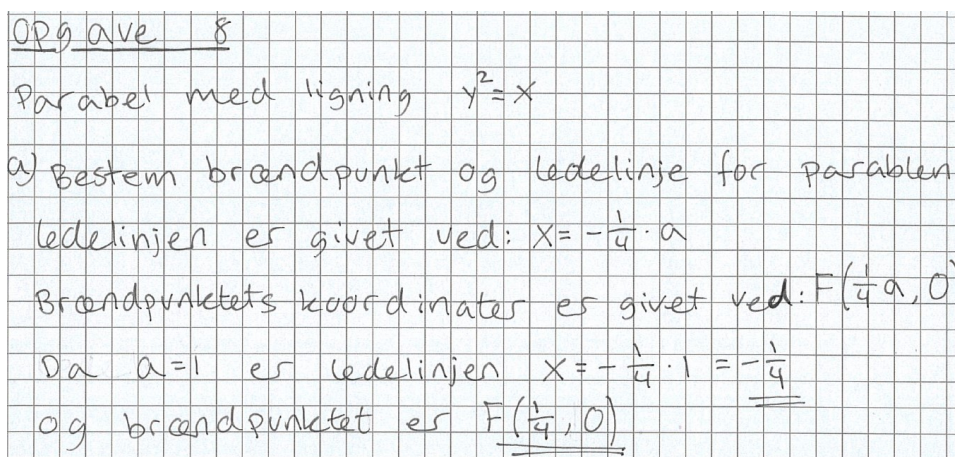 Opgave 8
Parabel med ligning y²=x
a) Bestem brændpunkt og ledelinje for parablen
ledelinjen er givet ved: x = -1/4 · a
Brændpunktets koordinater er givet ved: F(1/4 a, 0)
Da a=1 er ledelinjen x = -1/4 · 1 = -1/4
og brændpunktet er F(1/4, 0)